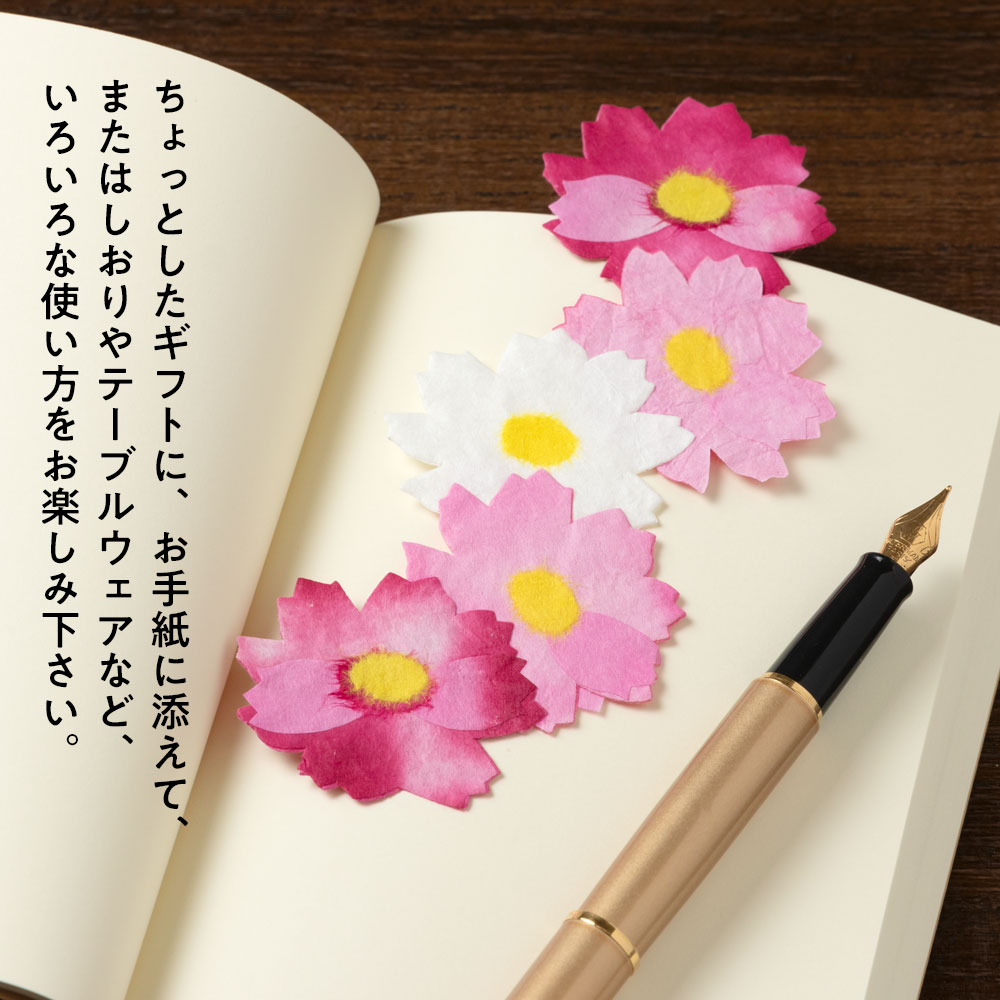 ちょっとしたギフトに、お手紙に添えて、
またはしおりやテーブルウェアなど、
いろいろな使い方をお楽しみ下さい。